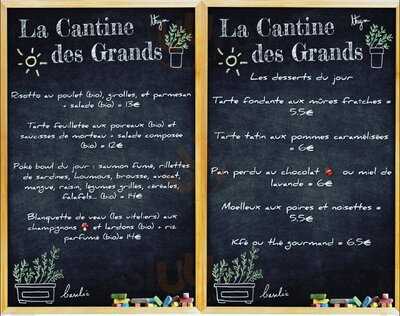 La Cantine
des Grands
Risotto au poulet (bio), girolles, et parmesan
+ salade (bio) = 13€
Tarte feuilletée aux poireaux (bio) et
saucisses de morteau + salade composée
(bio) = 12€
Poké bowl du jour : saumon fumé, rillettes
de sardines, houmous, brousse, avocat,
mangue, raisin, légumes grillés, céréales,
falafels... (bio) = 14€
Blanquette de veau (les viteliers) aux
champignons et lardons (bio) + riz
parfumé (bio)= 14€
basilic
La Cantine
des Grands
Les desserts du jour
Tarte fondante aux mûres fraîches =
5.5€
Tarte tatin aux pommes caramélisées
= 6€
Pain perdu au chocolat ou miel de
lavande = 6€
Moelleux aux poires et noisettes =
5.5€
Kfé ou thé gourmand = 6.5€
basilic